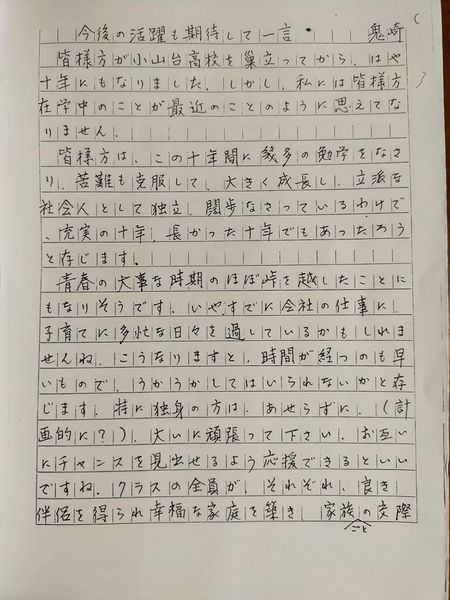 今後の活躍も期待して一言 鬼崎
皆様方が小山台高校を巣立ってから、はや
十年にもなりました。しかし、私には皆様方
在学中のことが最近のことのように思えてな
りません。
皆様方は、この十年間に幾多の勉学をなさ
り、苦難も克服して、大きく成長し、立派な
社会人として独立、闊歩なさっているわけで
、充実の十年、長かった十年でもあったろう
と存じます。
青春の大事な時期のほぼ峠を越したことに
もなりそうです。いやすでに会社の仕事に、
子育てに多忙な日々を過しているかもしれま
せんね。こうなりますと、時間が経つのも早
いもので、うかうかしてはいられないかと存
じます。特に独身の方は、あせらずに、（計
画的に？）、大いに頑張って下さい。お互い
にチャンスを見出せるよう応援できるといい
ですね。クラスの全員が、それぞれ、良き
伴侶を得られ幸福な家庭を築き、家族の交際
ごと